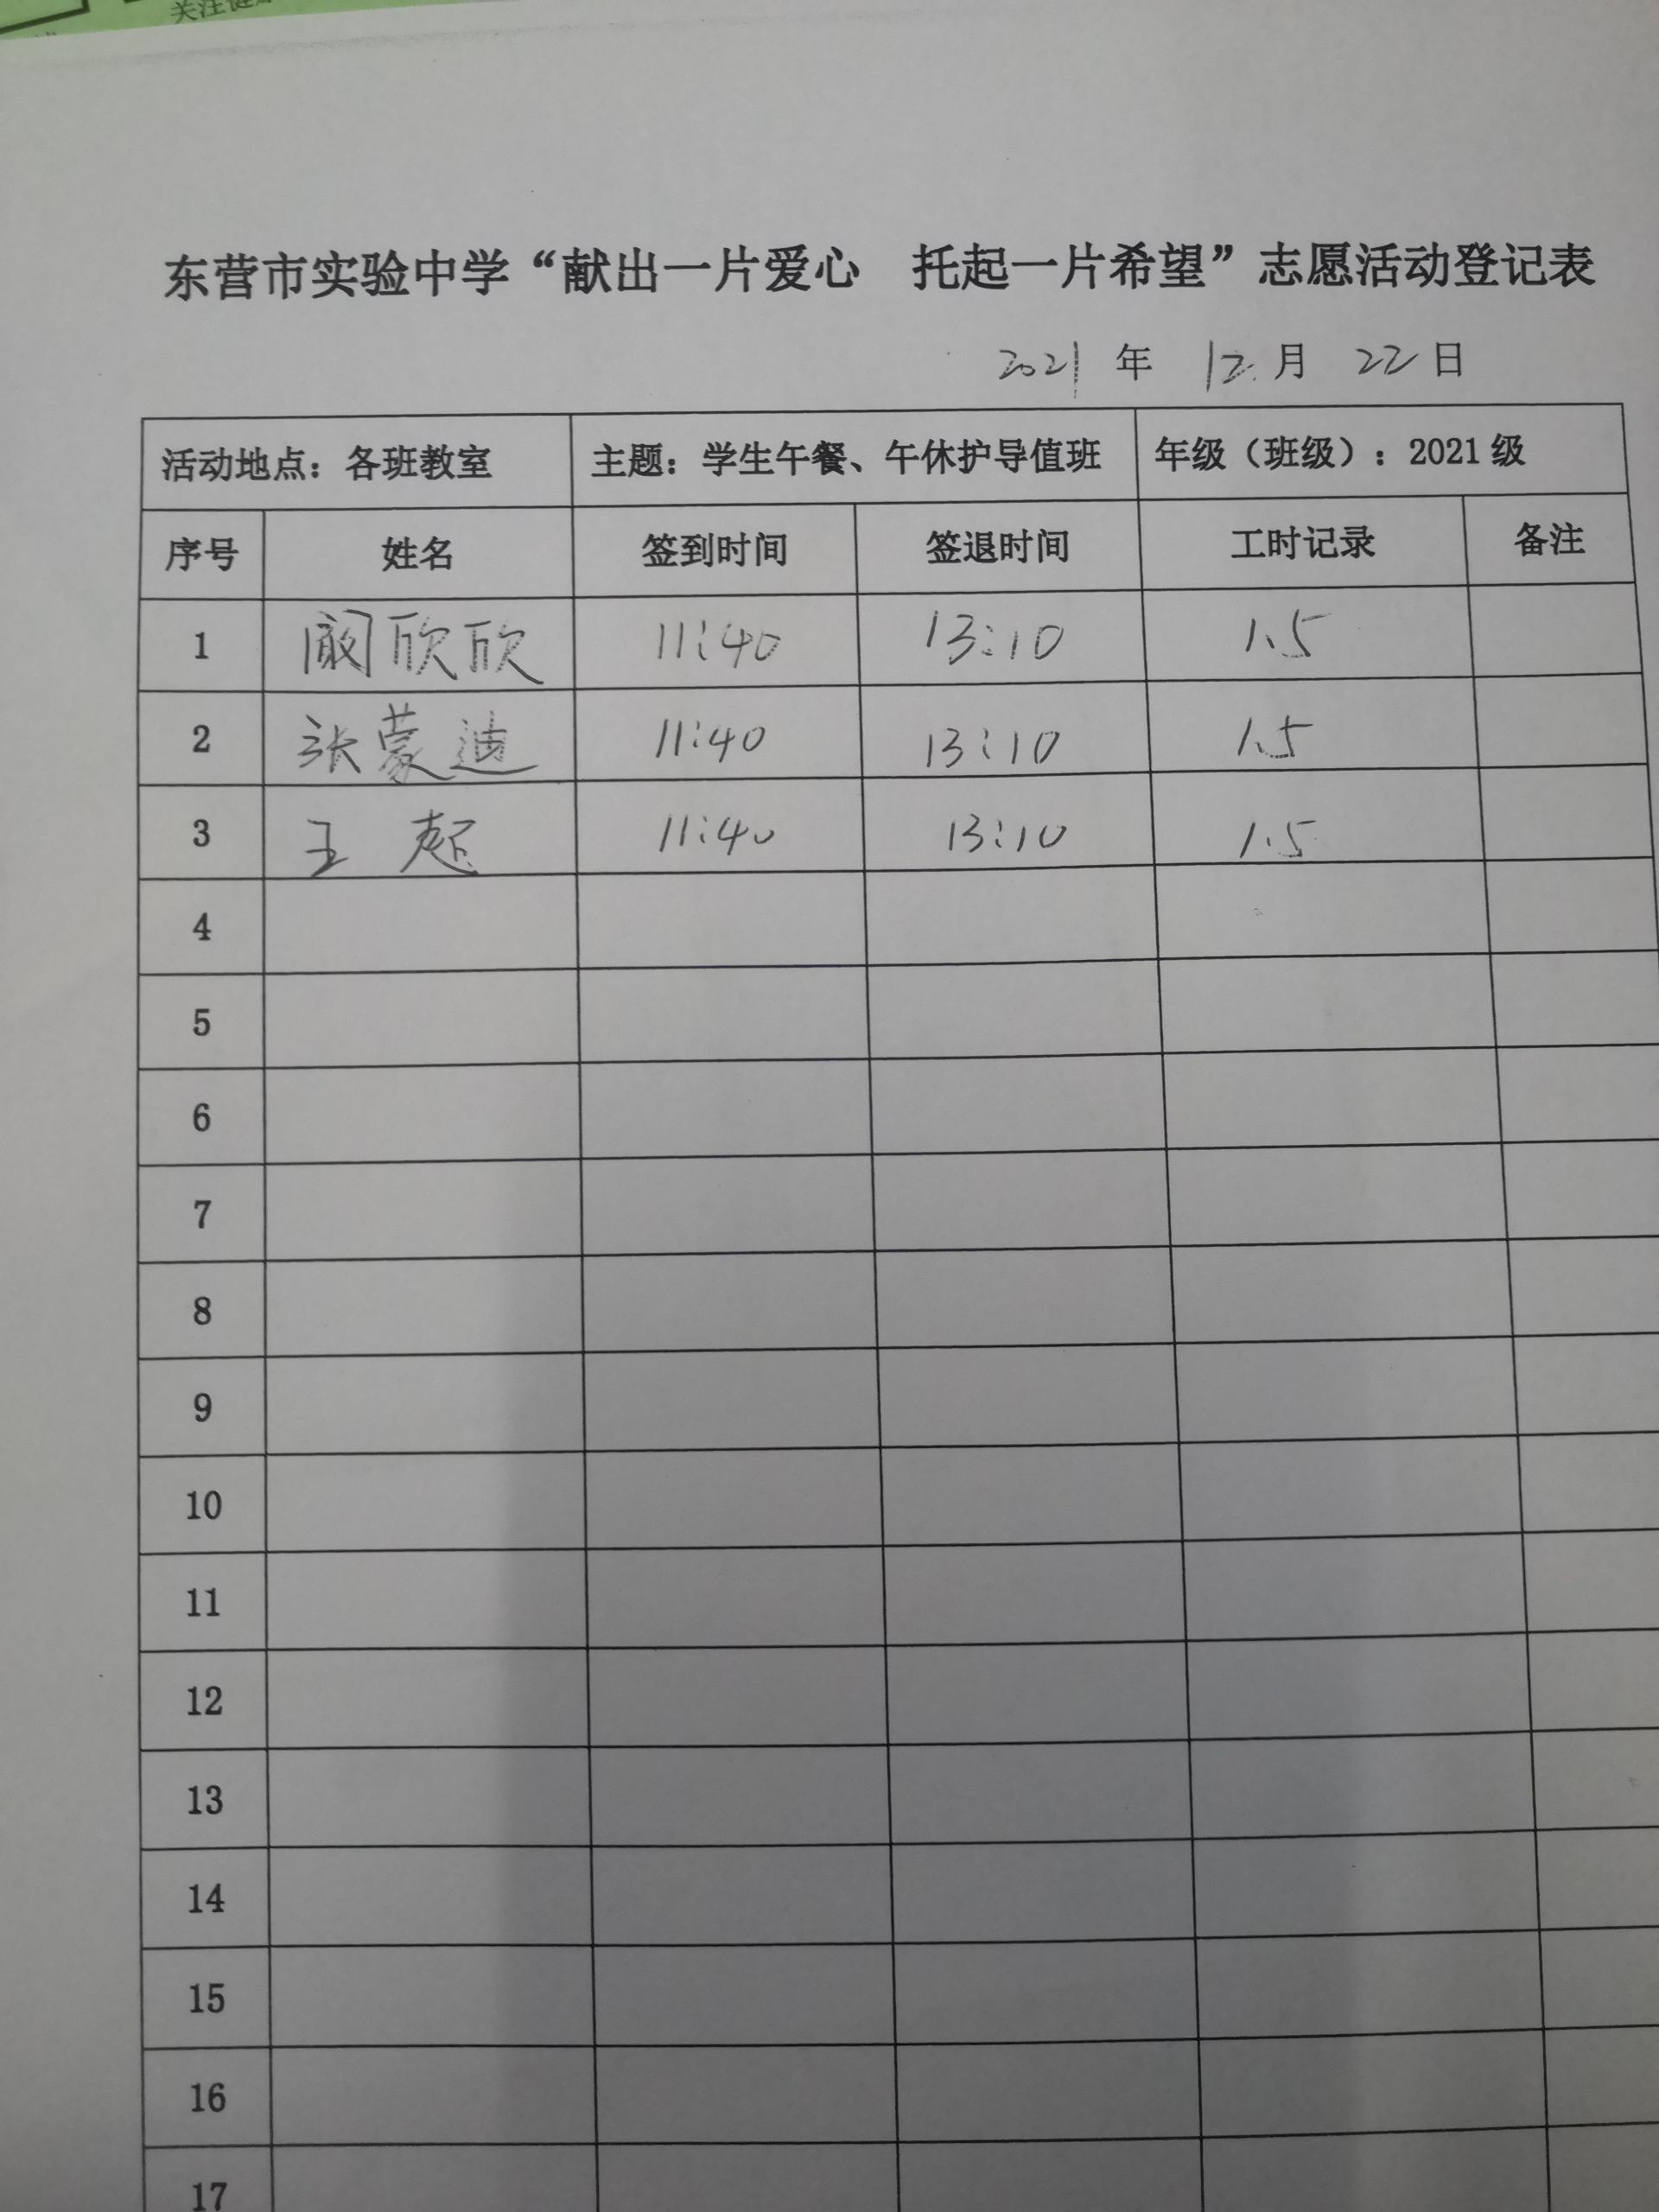 关注健
东营市实验中学“献出一片爱心 托起一片希望”志愿活动登记表
2021 年 12 月 22 日
活动地点：各班教室 主题：学生午餐、午休护导值班 年级（班级）：2021 级
序号 姓名 签到时间 签退时间 工时记录 备注
1 阚欣欣 11:40 13:10 1.5
2 张蒙迪 11:40 13:10 1.5
3 王超 11:40 13:10 1.5
4
5
6
7
8
9
10
11
12
13
14
15
16
17